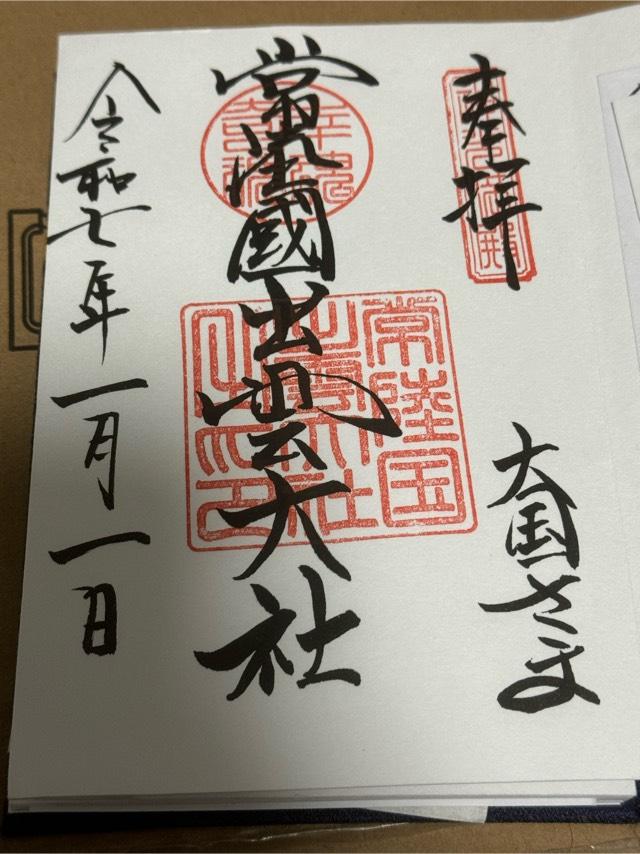 奉拝
大国さま
常陸國出雲大社
常陸国
出雲大社
之印
令和七年一月一日